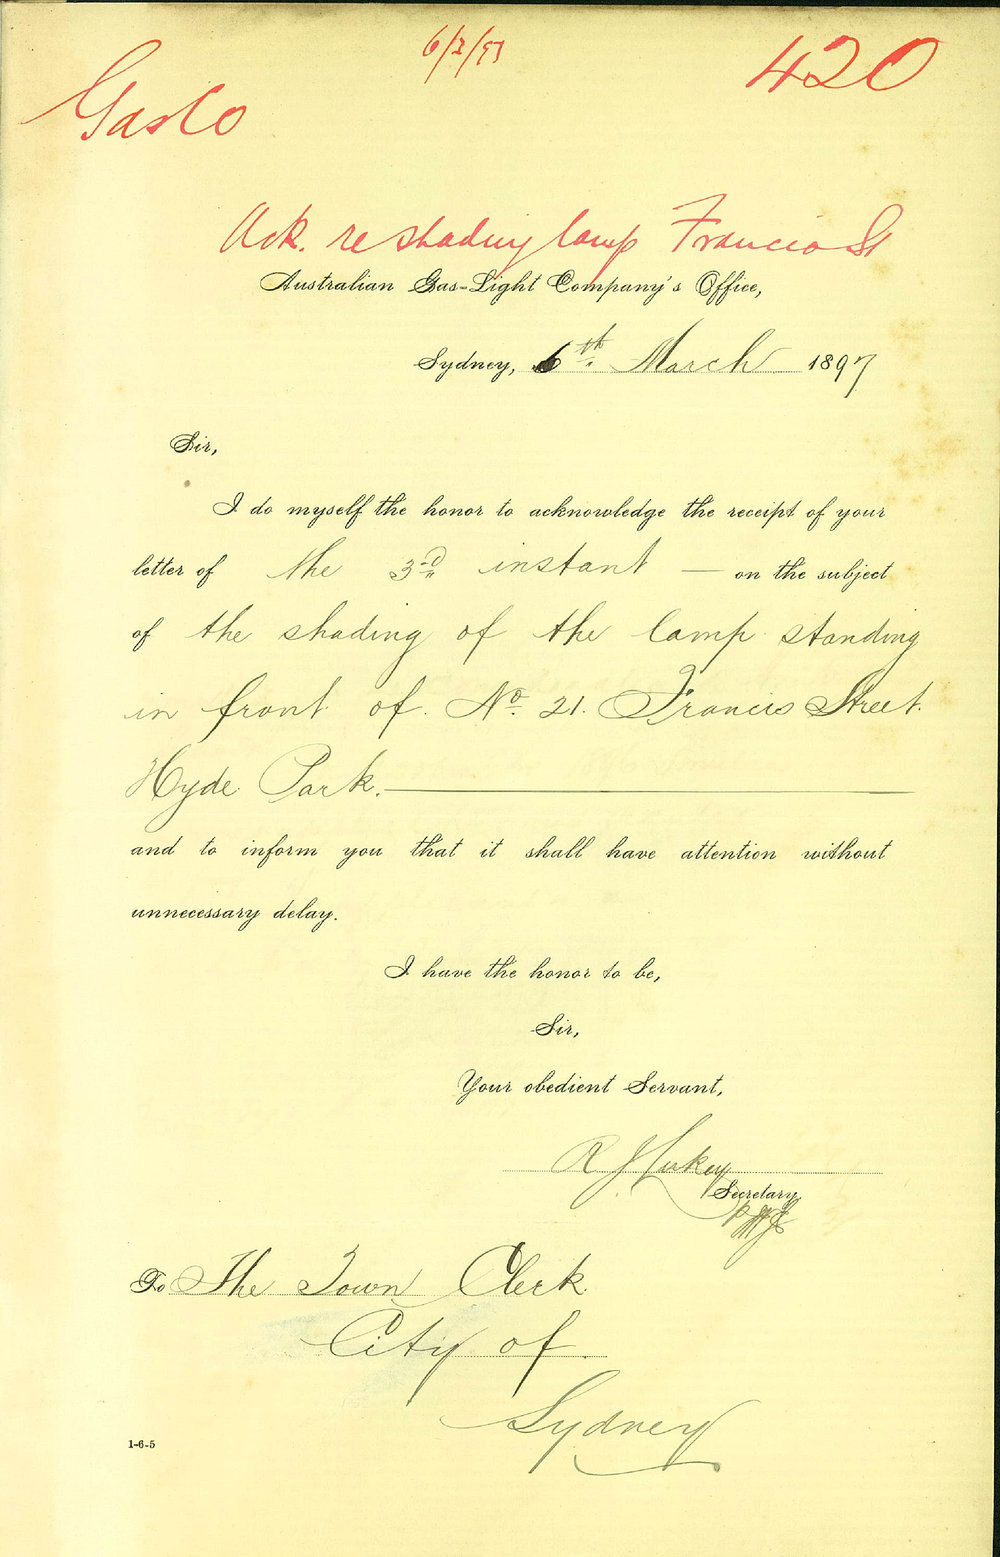 6/3/97
420
Gas Co
Ack. re shading lamp Francis St
Australian Gas-Light Company's Office,
Sydney, 6th. March 1897
Sir,
I do myself the honor to acknowledge the receipt of your
letter of the 3rd instant — on the subject
of the shading of the lamp standing
in front of No. 21. Francis Street.
Hyde Park.
and to inform you that it shall have attention without
unnecessary delay.
I have the honor to be,
Sir,
Your obedient Servant,
R J Lukey
Secretary
To The Town Clerk
City of
Sydney
1-6-5